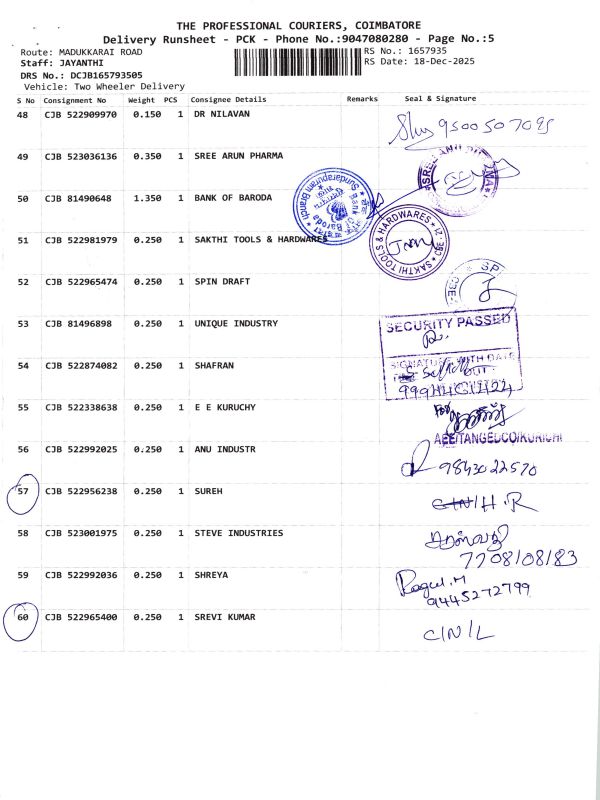 THE PROFESSIONAL COURIERS, COIMBATORE
Delivery Runsheet - PCK - Phone No.:9047080280 - Page No.:5
Route: MADUKKARAI ROAD RS No.: 1657935
Staff: JAYANTHI RS Date: 18-Dec-2025
DRS No.: DCJB165793505
Vehicle: Two Wheeler Delivery
S No Consignment No Weight PCS Consignee Details Remarks Seal & Signature
48 CJB 522909970 0.150 1 DR NILAVAN
49 CJB 523036136 0.350 1 SREE ARUN PHARMA
50 CJB 81490648 1.350 1 BANK OF BARODA
Bank of Baroda
Sundarapuram Branch
51 CJB 522981979 0.250 1 SAKTHI TOOLS & HARDWARES
SAKTHI TOOLS & HARDWARES
52 CJB 522965474 0.250 1 SPIN DRAFT
53 CJB 81496898 0.250 1 UNIQUE INDUSTRY
SECURITY PASSED
SIGNATURE WITH DATE
54 CJB 522874082 0.250 1 SHAFRAN
55 CJB 522338638 0.250 1 E E KURUCHY
AEE/TANGEDCO/KURICHI
56 CJB 522992025 0.250 1 ANU INDUSTR
9843022570
57 CJB 522956238 0.250 1 SUREH
58 CJB 523001975 0.250 1 STEVE INDUSTRIES
7708108183
59 CJB 522992036 0.250 1 SHREYA
Ragul.M
9445272799
60 CJB 522965400 0.250 1 SREVI KUMAR